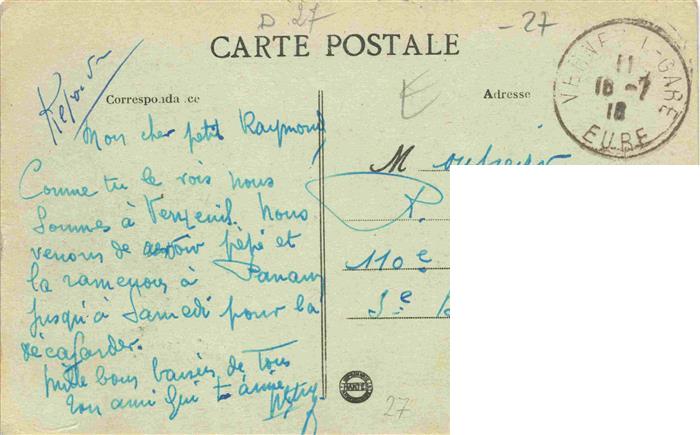 D. 27
- 27
CARTE POSTALE
Correspondance
Adresse
E
11
16 -7
18
EURE
Mon cher petit Raymond
Comme tu le vois nous
sommes à Verneuil. Nous
venons de pépé et
la ramenons à Panam
jusqu'à Samedi pour la
mille bons baisers de Tous
ton ami qui t'aime
M
110e
3e
27